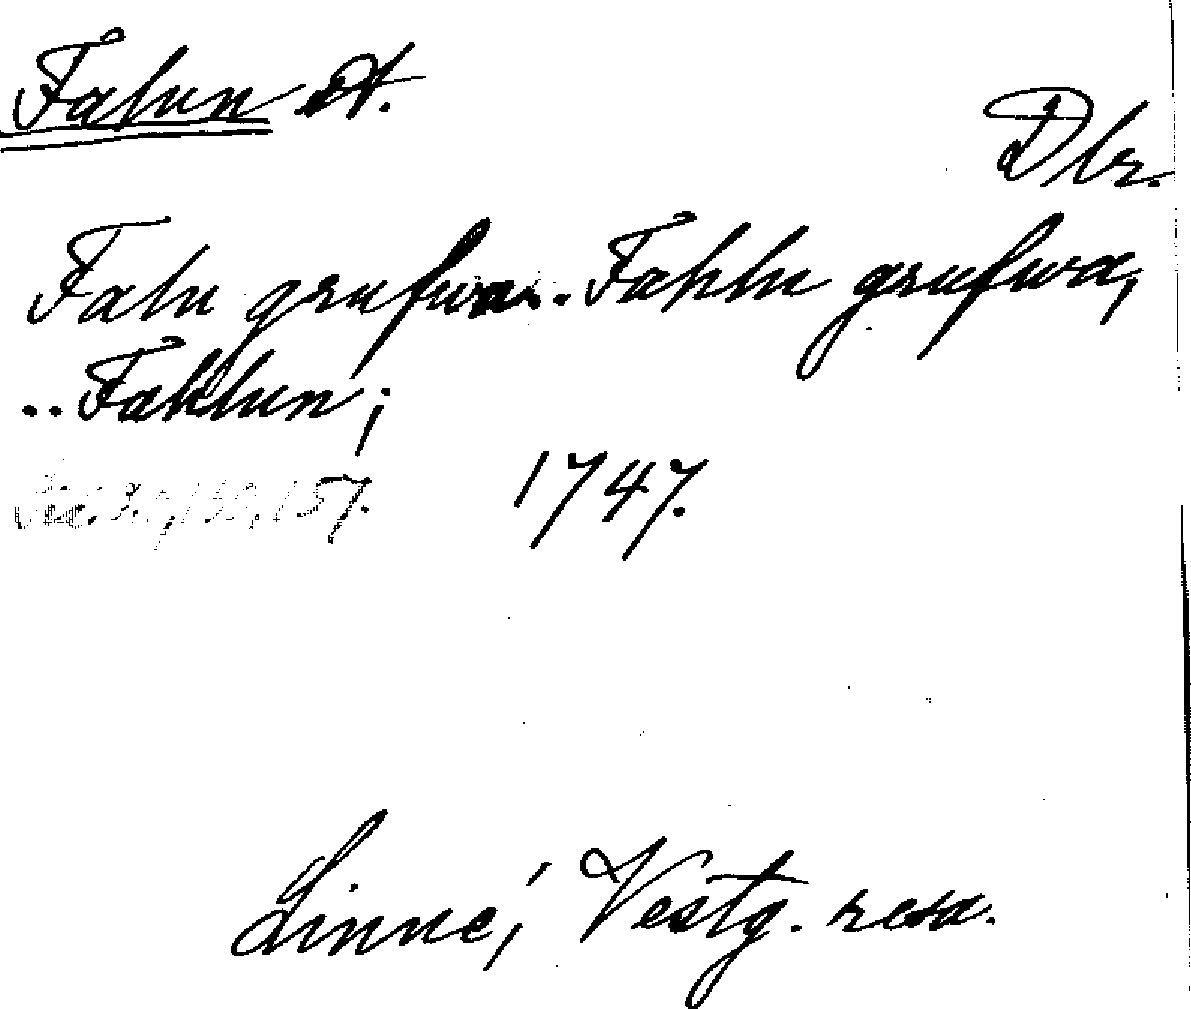 Falun St.
Dlr.
Falu grufwa.. Fahlu grufwa,
.. Fahlun;
157. 1747.
Linné, Vestg. resa.